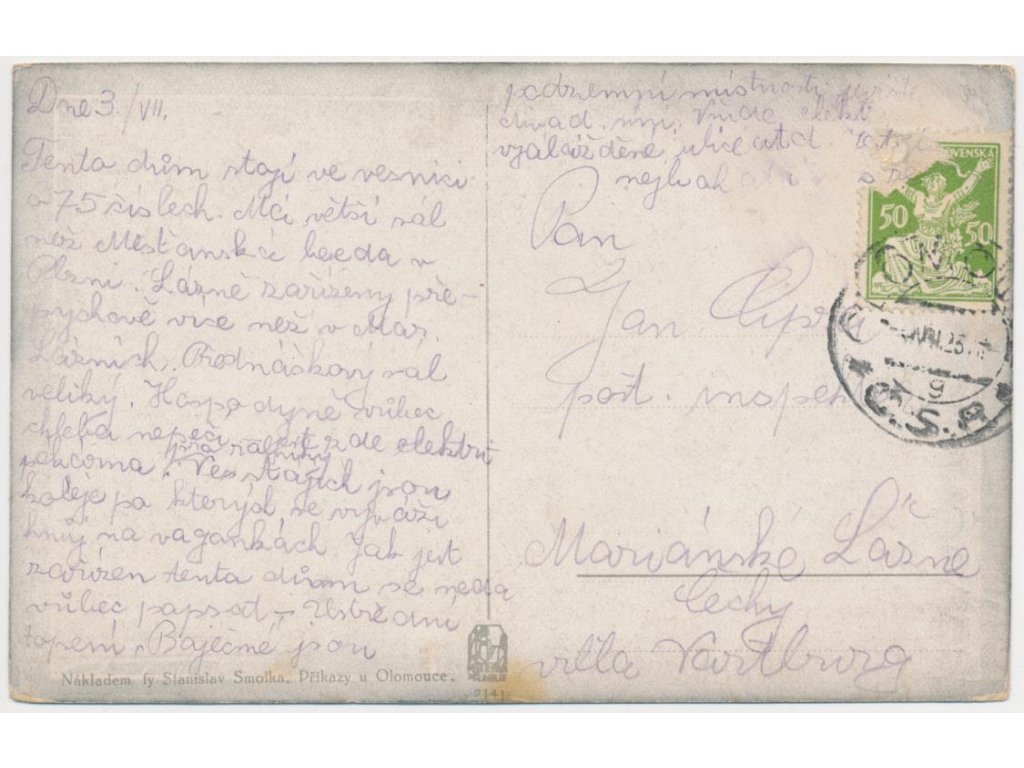 Dne 3./VII.
Tento dům stojí ve vesnici
o 75 číslech. Má větší sál
než Měšťanská beseda v
Plzni. Lázně zařízeny pře-
pychově více než v Mar.
Lázních. Přednáškový sal
veliký. Hospodyně vůbec
chleba nepeči, jest zde elektri
pekarna pro rolníky. Ve stajích jsou
koleje po kterých se vyváži
hnůj na vagonkách. Jak jest
zařízen tento dům se nedá
vůbec popsat, - Ustřední
topení. Báječné jsou
podzemní místnosti
divad. Všude elekt
ulice atd
Pan
Jan
pošt. inspek
Mariánské Lázně
Čechy
villa Vartburg
OVENSKÁ
50 50
Č.S.R.
9
Nákladem fy Stanislav Smolka, Příkazy u Olomouce.
2141